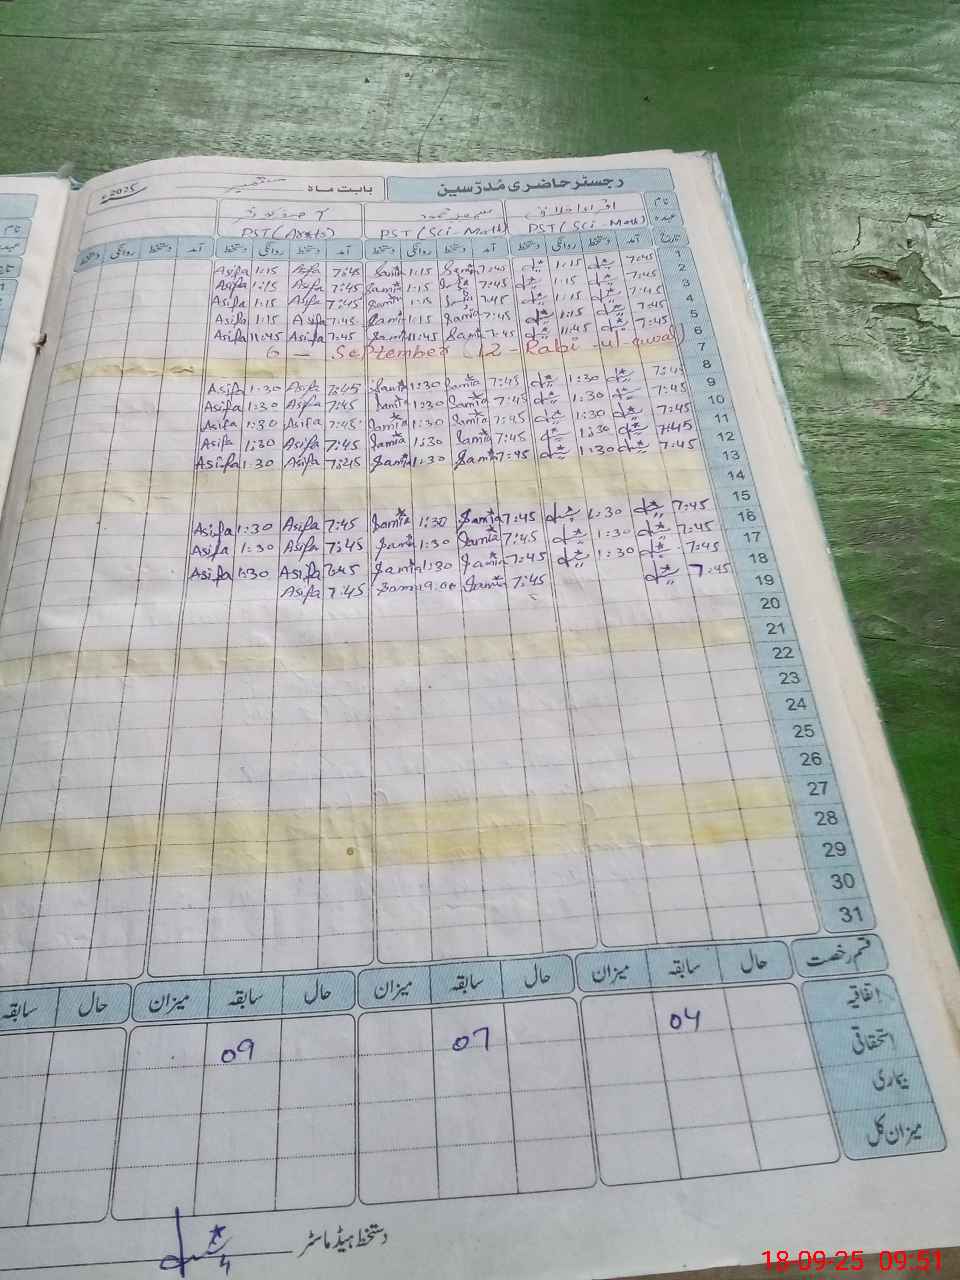 رجسٹر حاضری مُدرّسین بابت ماہ ستمبر 2025ء
نام
عہدہ PST (Sci-Math) PST (Sci-Math) PST (Arts)
تاریخ آمد دستخط روانگی دستخط آمد دستخط روانگی دستخط آمد دستخط روانگی دستخط آمد دستخط روانگی دستخط
1 7:45 1:15 7:45 Samia 1:15 Samia 7:45 Asifa 1:15 Asifa
2 7:45 1:15 7:45 1:15 Samia 7:45 Asifa 1:15 Asifa
3 7:45 1:15 7:45 1:15 Samia 7:45 Asifa 1:15 Asifa
4 7:45 1:15 7:45 Samia 1:15 Samia 7:45 Asifa 1:15 Asifa
5 7:45 11:45 7:45 Samia 11:45 Samia 7:45 Asifa 11:45 Asifa
6 6 - September (12 - Rabi-ul-awal)
7
8 7:45 1:30 7:45 Samia 1:30 Samia 7:45 Asifa 1:30 Asifa
9 7:45 1:30 7:45 Samia 1:30 Samia 7:45 Asifa 1:30 Asifa
10 7:45 1:30 7:45 Samia 1:30 Samia 7:45 Asifa 1:30 Asifa
11 7:45 1:30 7:45 Samia 1:30 Samia 7:45 Asifa 1:30 Asifa
12 7:45 1:30 7:45 Samia 1:30 Samia 7:45 Asifa 1:30 Asifa
13
14
15 7:45 1:30 7:45 Samia 1:30 Samia 7:45 Asifa 1:30 Asifa
16 7:45 1:30 7:45 Samia 1:30 Samia 7:45 Asifa 1:30 Asifa
17 7:45 1:30 7:45 Samia 1:30 Samia 7:45 Asifa 1:30 Asifa
18 7:45 7:45 Samia 7:45 Asifa
19
20
21
22
23
24
25
26
27
28
29
30
31
قسم رخصت حال سابقہ میزان حال سابقہ میزان حال سابقہ میزان حال سابقہ
اتفاقیہ 04 07 09
استحقاقی
بیماری
میزان کل
دستخط ہیڈ ماسٹر
18-09-25 09:51